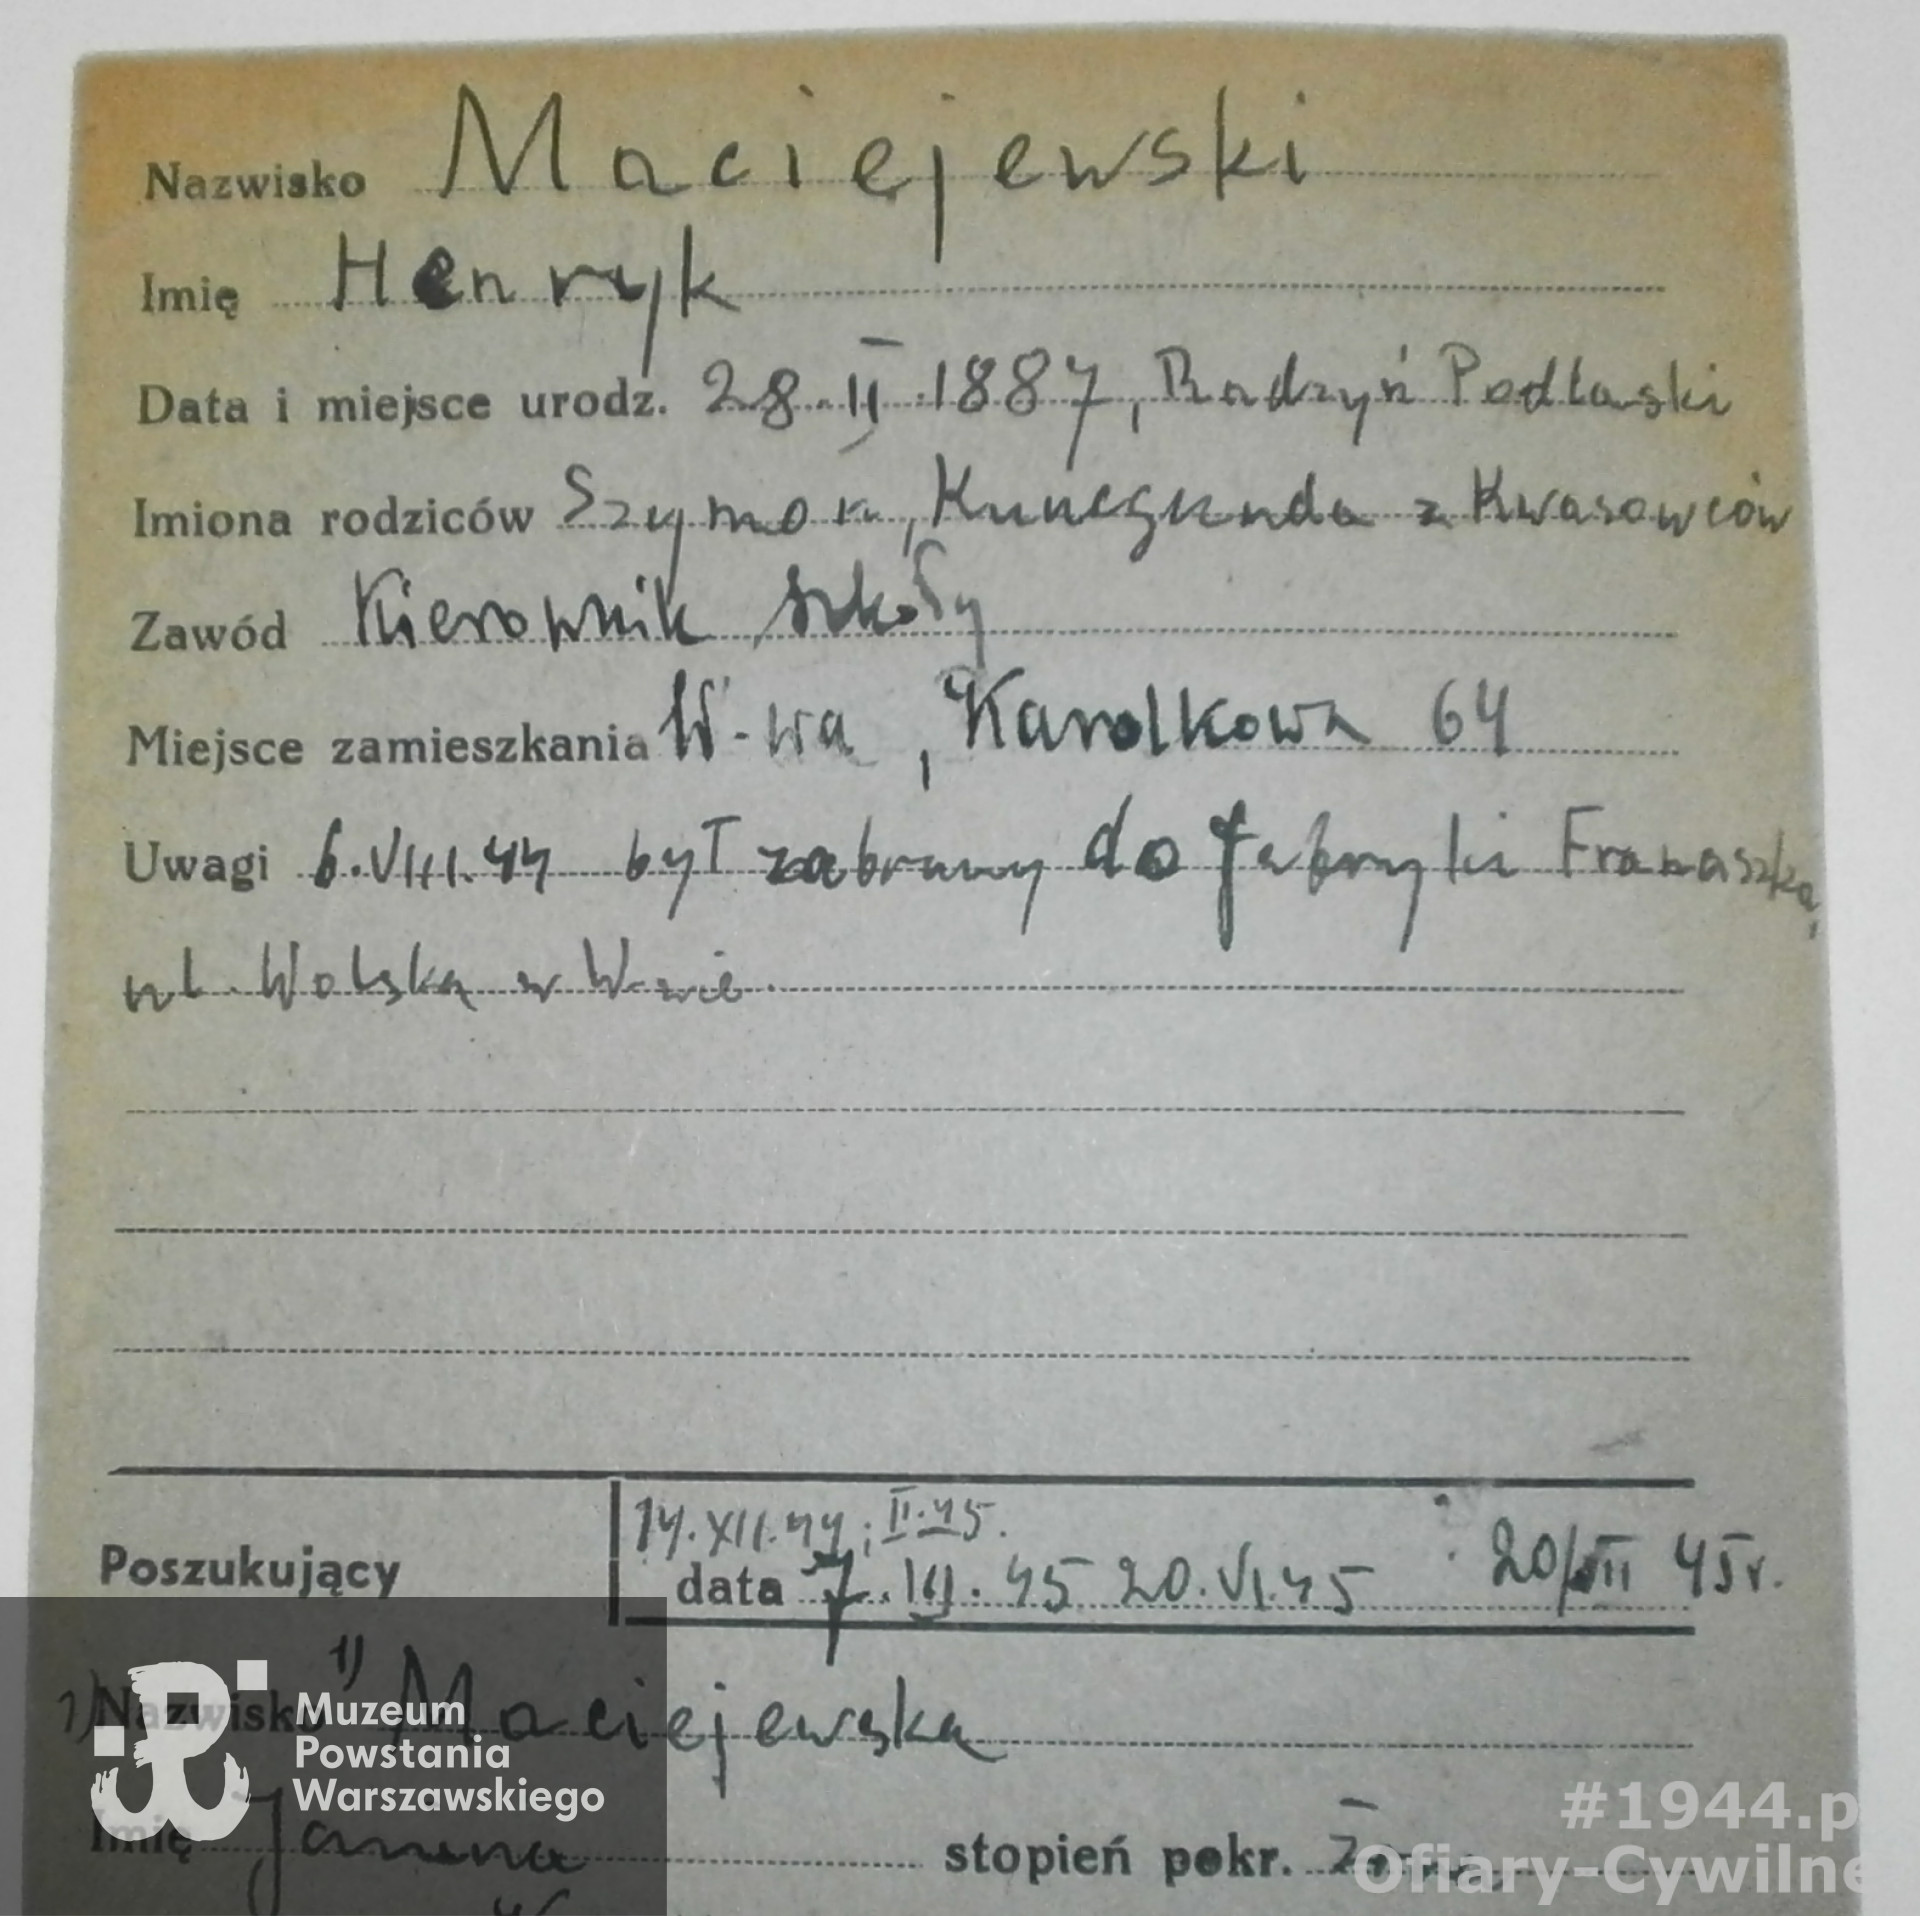 Nazwisko Maciejewski
Imię Henryk
Data i miejsce urodz. 28.II.1887, Radzyń Podlaski
Imiona rodziców Szymon, Kunegunda z Kwasowców
Zawód Kierownik szkoły
Miejsce zamieszkania W-wa, Karolkowa 64
Uwagi 6.VIII.44 był zabrany do fabryki Franaszka,
ul. Wolska w W-wie.
14.XII.44; II.45.
Poszukujący data 7.III.45 20.VI.45 20/VII 45r.
1) Nazwisko 1) Maciejewska
Imię Janina stopień pokr. Żona
Muzeum
Powstania
Warszawskiego
#1944.p
Ofiary-Cywilne